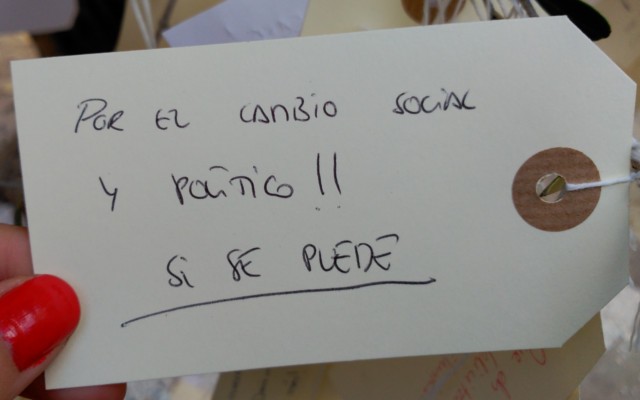 POR EL CAMBIO SOCIAL
Y POLÍTICO!!
Si SE PUEDE